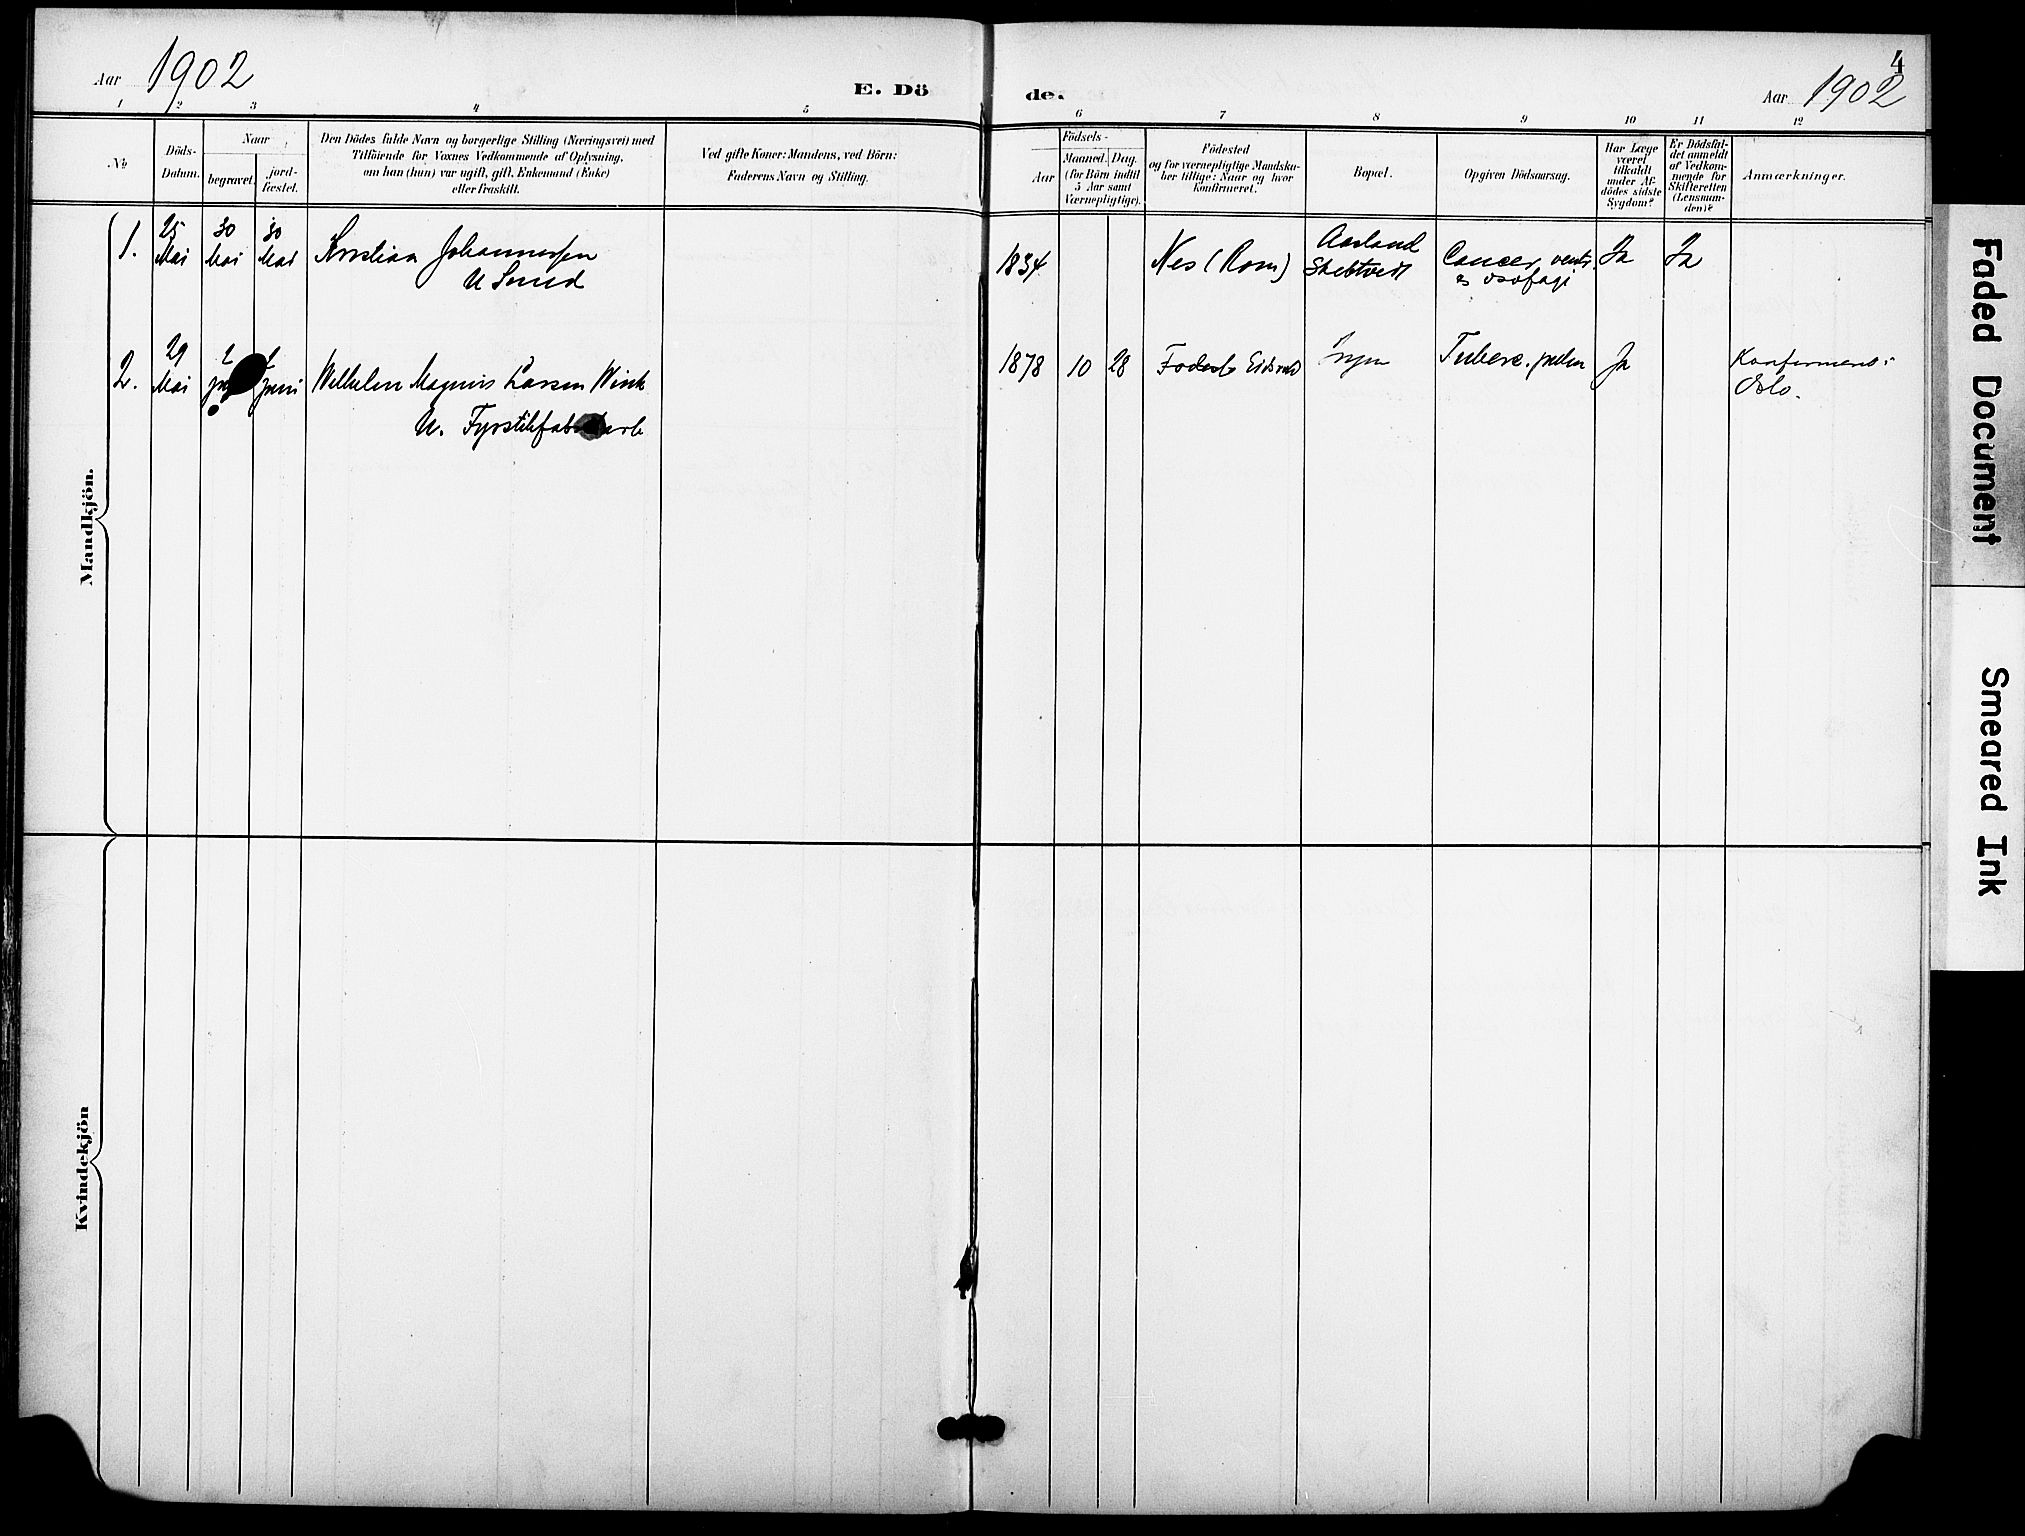 Aar 1902
E. Dö
de.
4
Aar 1902
1 2 3 4 5
6 7 8 9 10 11 12
No
Döds-
Datum.
Naar
begravet.
jord-
fæstet.
Den Dödes fulde Navn og borgerlige Stilling (Næringsvei) med
Tilföiende for Voxnes Vedkommende af Oplysning,
om han (hun) var ugift, gift, Enkemand (Enke)
eller fraskilt.
Ved gifte Koner: Mandens, ved Börn:
Faderens Navn og Stilling.
Födsels-
Aar
Maaned. Dag.
(for Börn indtil
5 Aar samt
Værnepligtige).
Födested
og for værnepligtige Mandska-
ber tillige: Naar og hvor
Konfirmeret.
Bopæl.
Opgiven Dödsaarsag.
Har Læge
været
tilkaldt
under Af-
dödes sidste
Sygdom?
Er Dödsfal-
det anmeldt
af Vedkom-
mende for
Skifteretten
(Lensman-
den)?
Anmærkninger.
Mandkjön.
1.
25
Mai
30
Mai
30
Mai
Kristian Johannessen
U Smed
1834
Nes (Rom)
Aasland
Cancer ventr.
Ja
Ja
2.
29
Mai
2
2
Juni
Wilhelm Magnus Larsen Wink
U.
1878 10 28
Eidsvold
Ingen
Tuberc. pulm
Ja
Oslo.
Kvindekjön
Faded Document
Smeared Ink